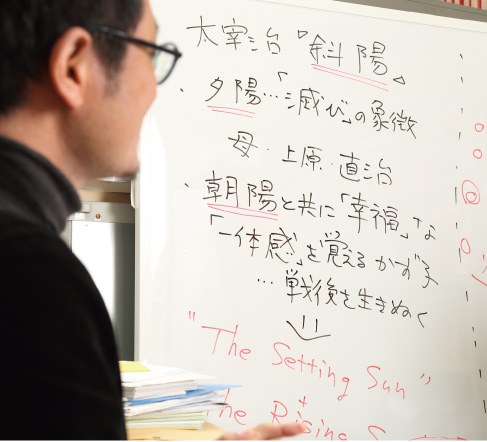 太宰治『斜陽』
・夕陽…「滅び」の象徴
母・上原・直治
・朝陽と共に「幸福」な
「一体感」を覚えるかず子
…戦後を生きぬく
"The Setting Sun"
+
The Rising S